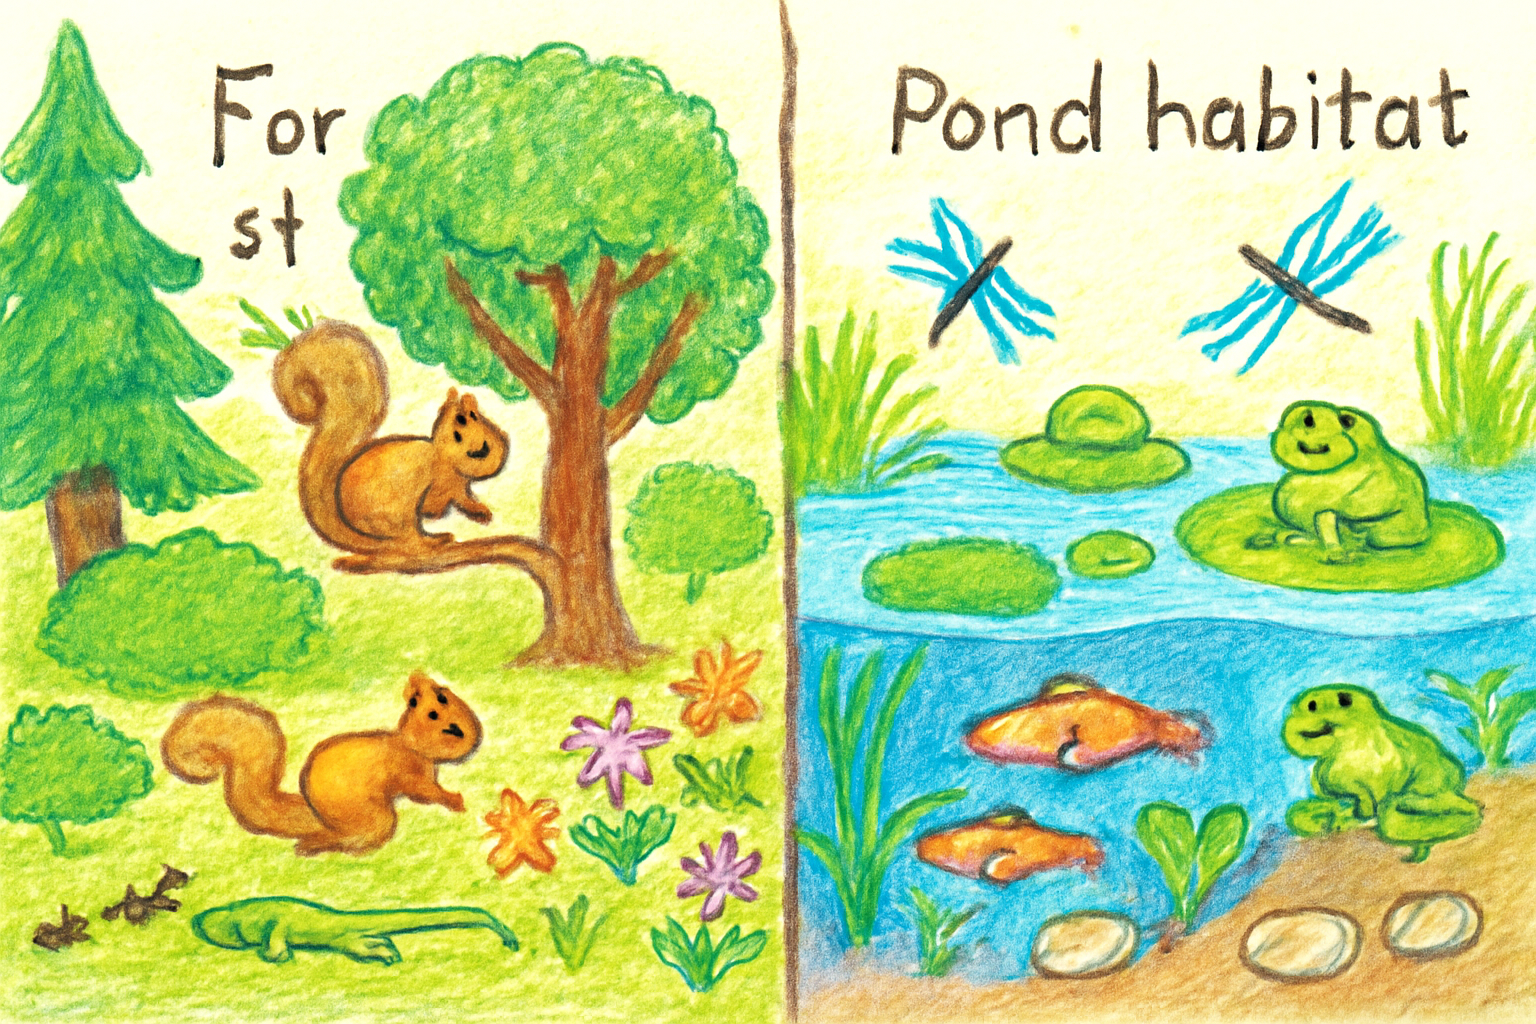 For
st
Pond habitat